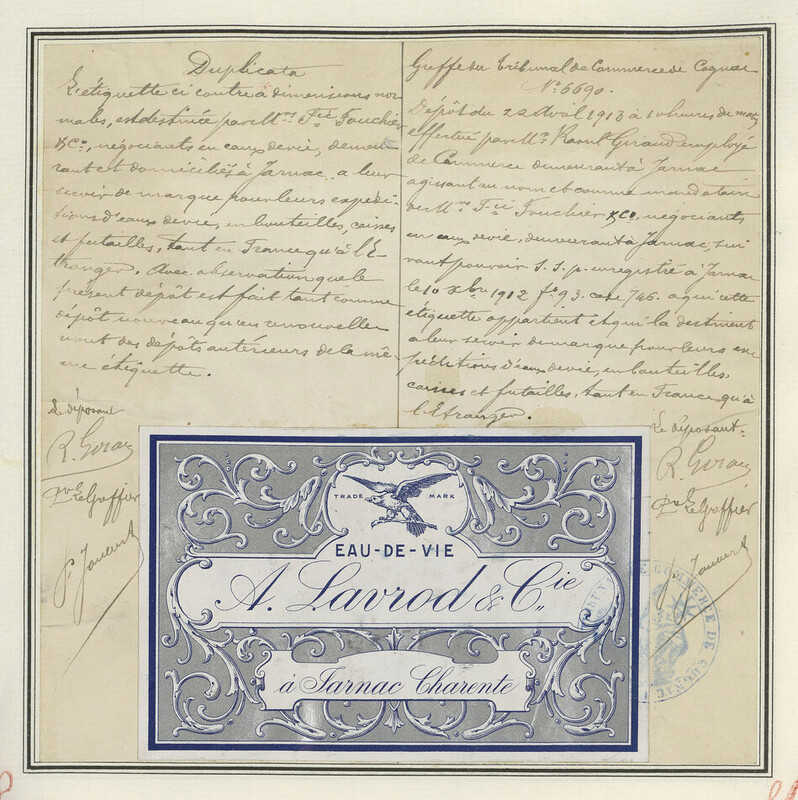 Duplicata
L'étiquette ci contre à dimensions nor-
males, est destinée par M.rs F.cis Fouchier
& C.o, négociants en eaux devie, demeu-
rant et domiciliés à Jarnac, a leur
servir de marque pour leurs expédi-
tions d'eaux devie, en bouteilles, caisses
et futailles, tant en France qu'à l'É-
tranger. Avec observation que le
présent dépôt est fait tant comme
dépôt nouveau qu'en renouvelle-
ment des dépôts antérieurs de la mê-
me étiquette.
Le déposant
R. Giraud
p.r le Greffier
Greffe du Tribunal de Commerce de Cognac
N.o 6690.
Dépôt du 22 Avril 1913 à 10 heures du matin
effectué par M.r Raoul Giraud employé
de Commerce demeurant à Jarnac
agissant au nom et comme mandataire
de M.rs F.cis Fouchier & C.o, négociants
en eaux devie, demeurant à Jarnac, sui-
vant pouvoir S.S.p. enregistré à Jarnac
le 10 xbre 1912 f.o 93. case 746. a qui cette
étiquette appartient et qui la destinent
a leur servir de marque pour leurs ex-
péditions d'eaux devie, en bouteilles,
caisses et futailles, tant en France qu'à
l'Etranger.
Le déposant.
R. Giraud
p.r le Greffier
TRADE MARK
EAU-DE-VIE
A. Lavrod & C.ie
à Jarnac Charente
COMMERCE DE COGNAC